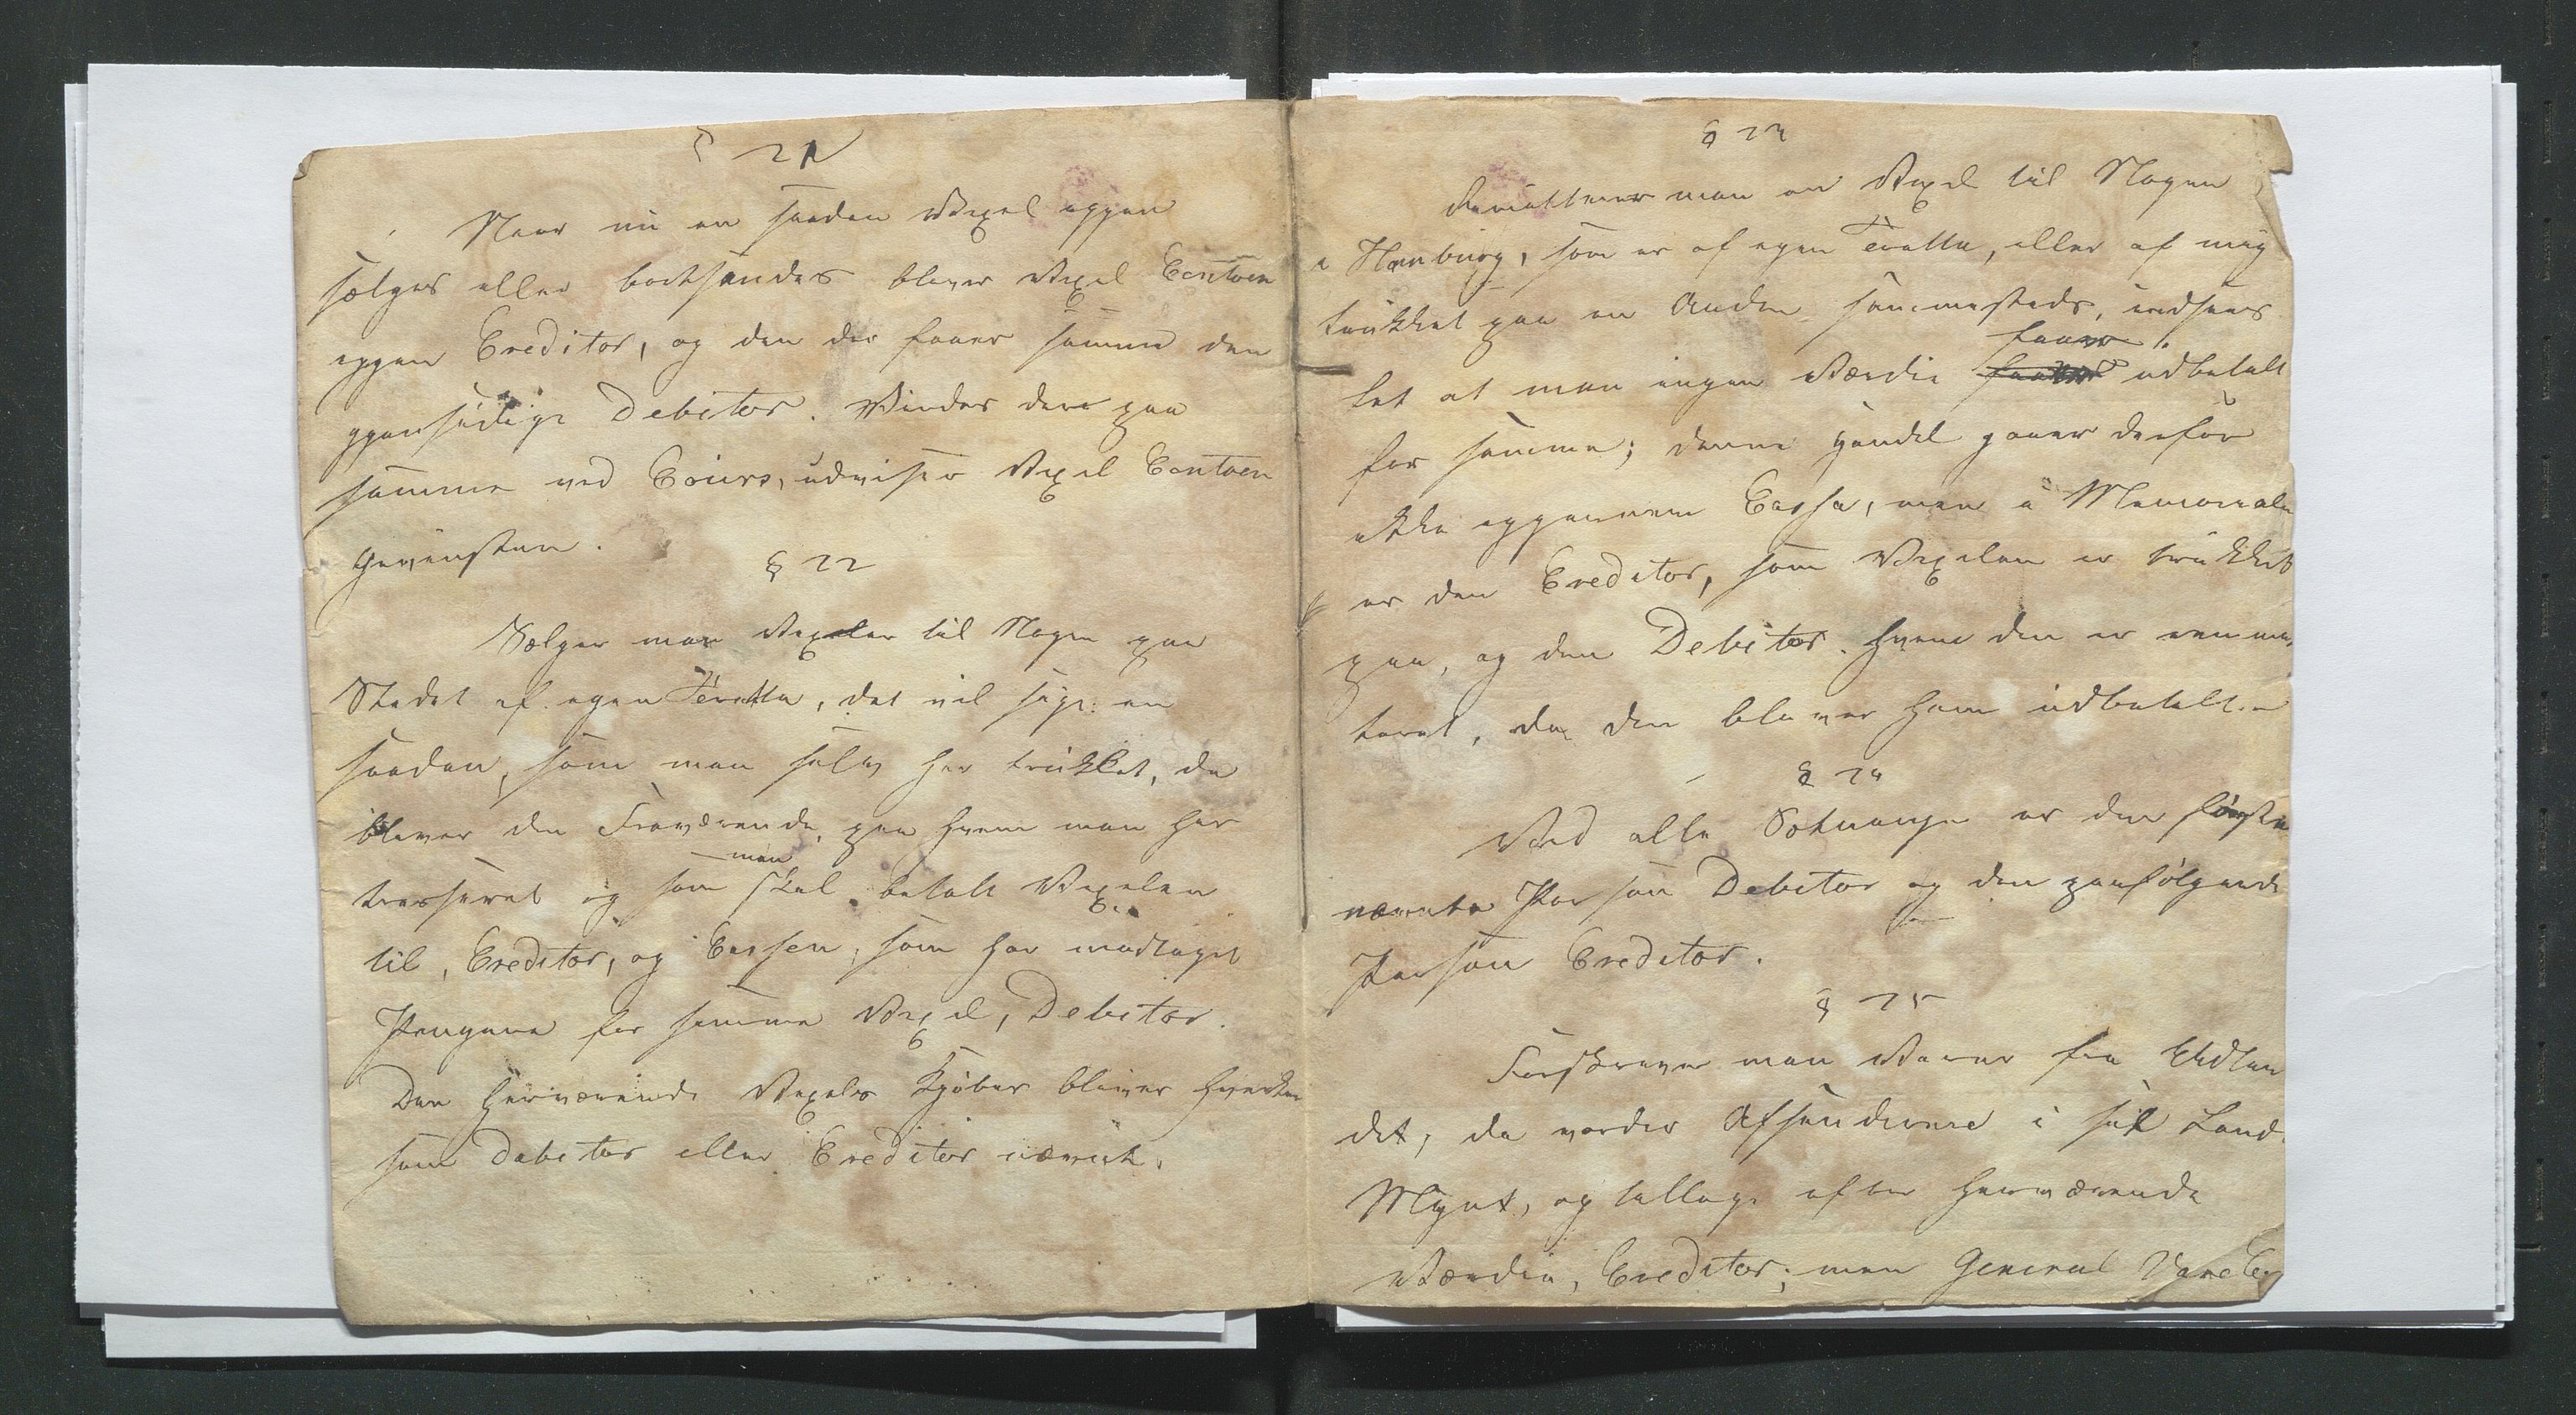 § 21
Naar nu en saadan Vexel igjen
sælges eller bortsendes bliver Vexel Contoen
igjen Creditor, og den der faaer samme den
gjensidige Debitor. Vindes der paa
samme ved Cours, udviser Vexel Contoen
Gevinsten.
§ 22
Sælger man Vexeler til Nogen paa
Stedet af egen Tratta, det vil sige: en
saadan, som man selv har trukket, da
bliver den Fraværende, paa hvem man har
man
trasseret og som skal betale Vexelen
til, Creditor, og Cassen, som har modtaget
Pengene for samme Vexel, Debitor.
Den Herværende Vexels Kjøber bliver hverken
som Debitor eller Creditor nævnt.
§ 23
Remitterer man en Vexel til Nogen
i Hamburg, som er af egen Tratta, eller af mig
trukket paa en Anden sammesteds, indsees
faaer
let at man ingen Værdie udbetalt
for samme; denne Handel gaaer derfor
ikke igjennem Cassa, men i Memorialen
er den Creditor, som Vexelen er trukket
paa, og den Debitor hvem den er remit
teret, da den bliver ham udbetalt.
§ 24
Ved alle Sætninger er den første
nævnte Person Debitor og den paafølgende
Person Creditor.
§ 25
Forskriver man Varer fra Udlan
det, da vorder Afsenderne i sit Lands
Mynt, og tillige efter herværende
Værdie, Creditor; men General Vare Co